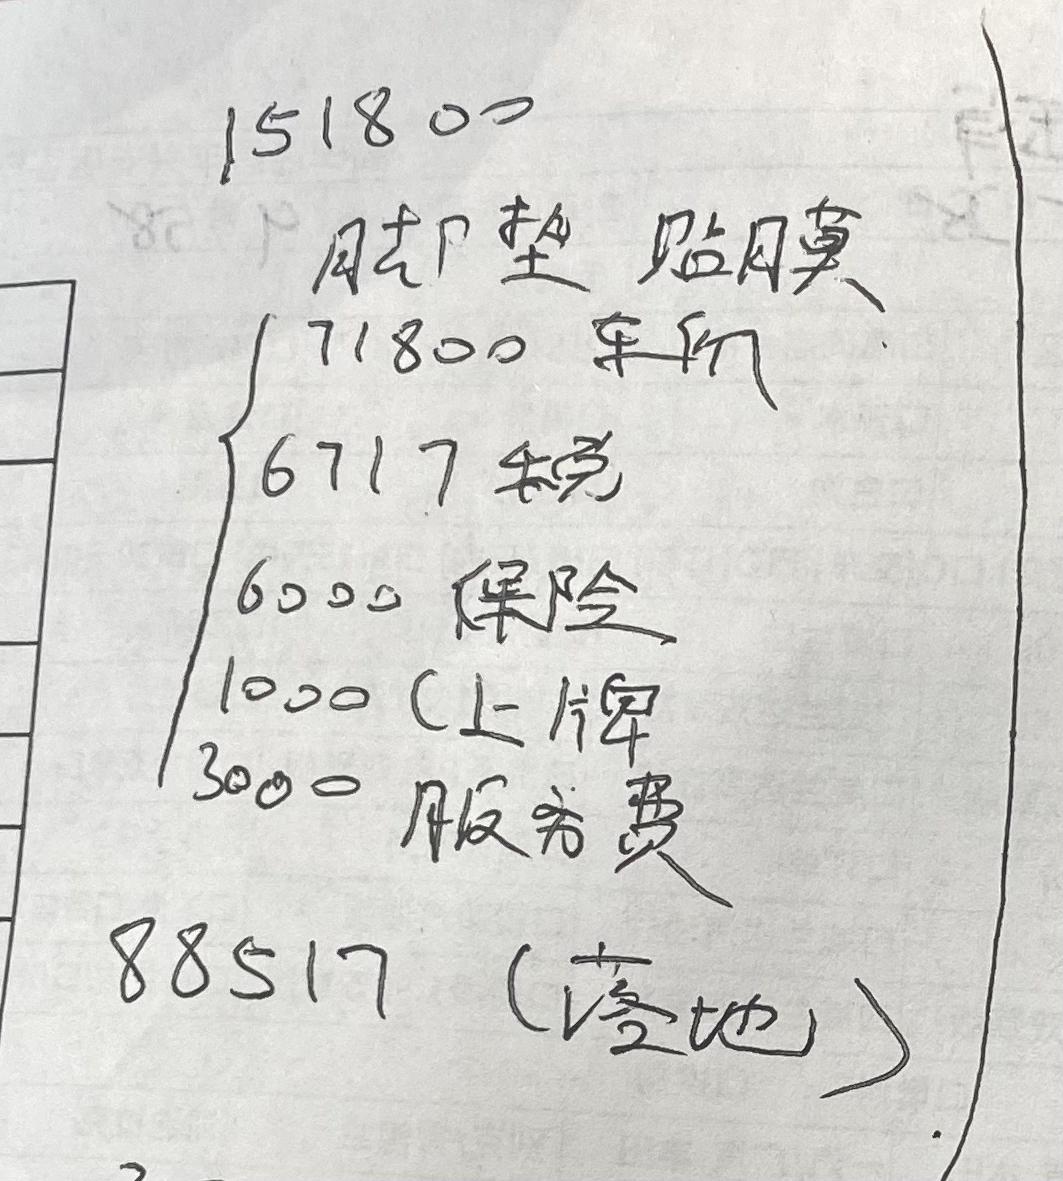 151800
脚垫 贴膜
71800 车价
6717 税
6000 保险
1000 (上牌
3000 服务费
88517 (落地)